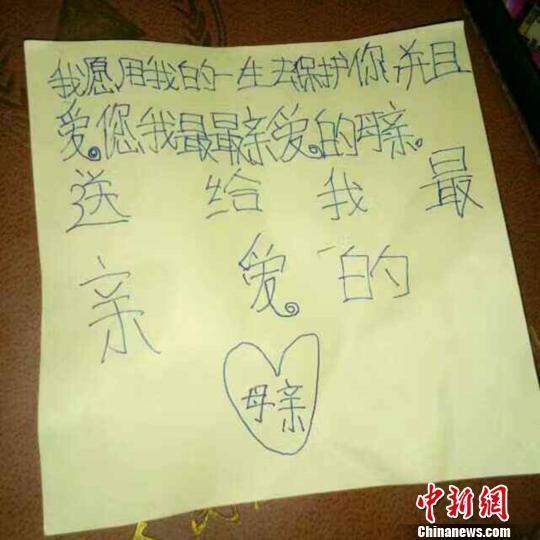 我愿用我的一生去保护你,并且
爱您,我最最亲爱的母亲。
送给我最
亲爱的
母亲
中新网
Chinanews.com